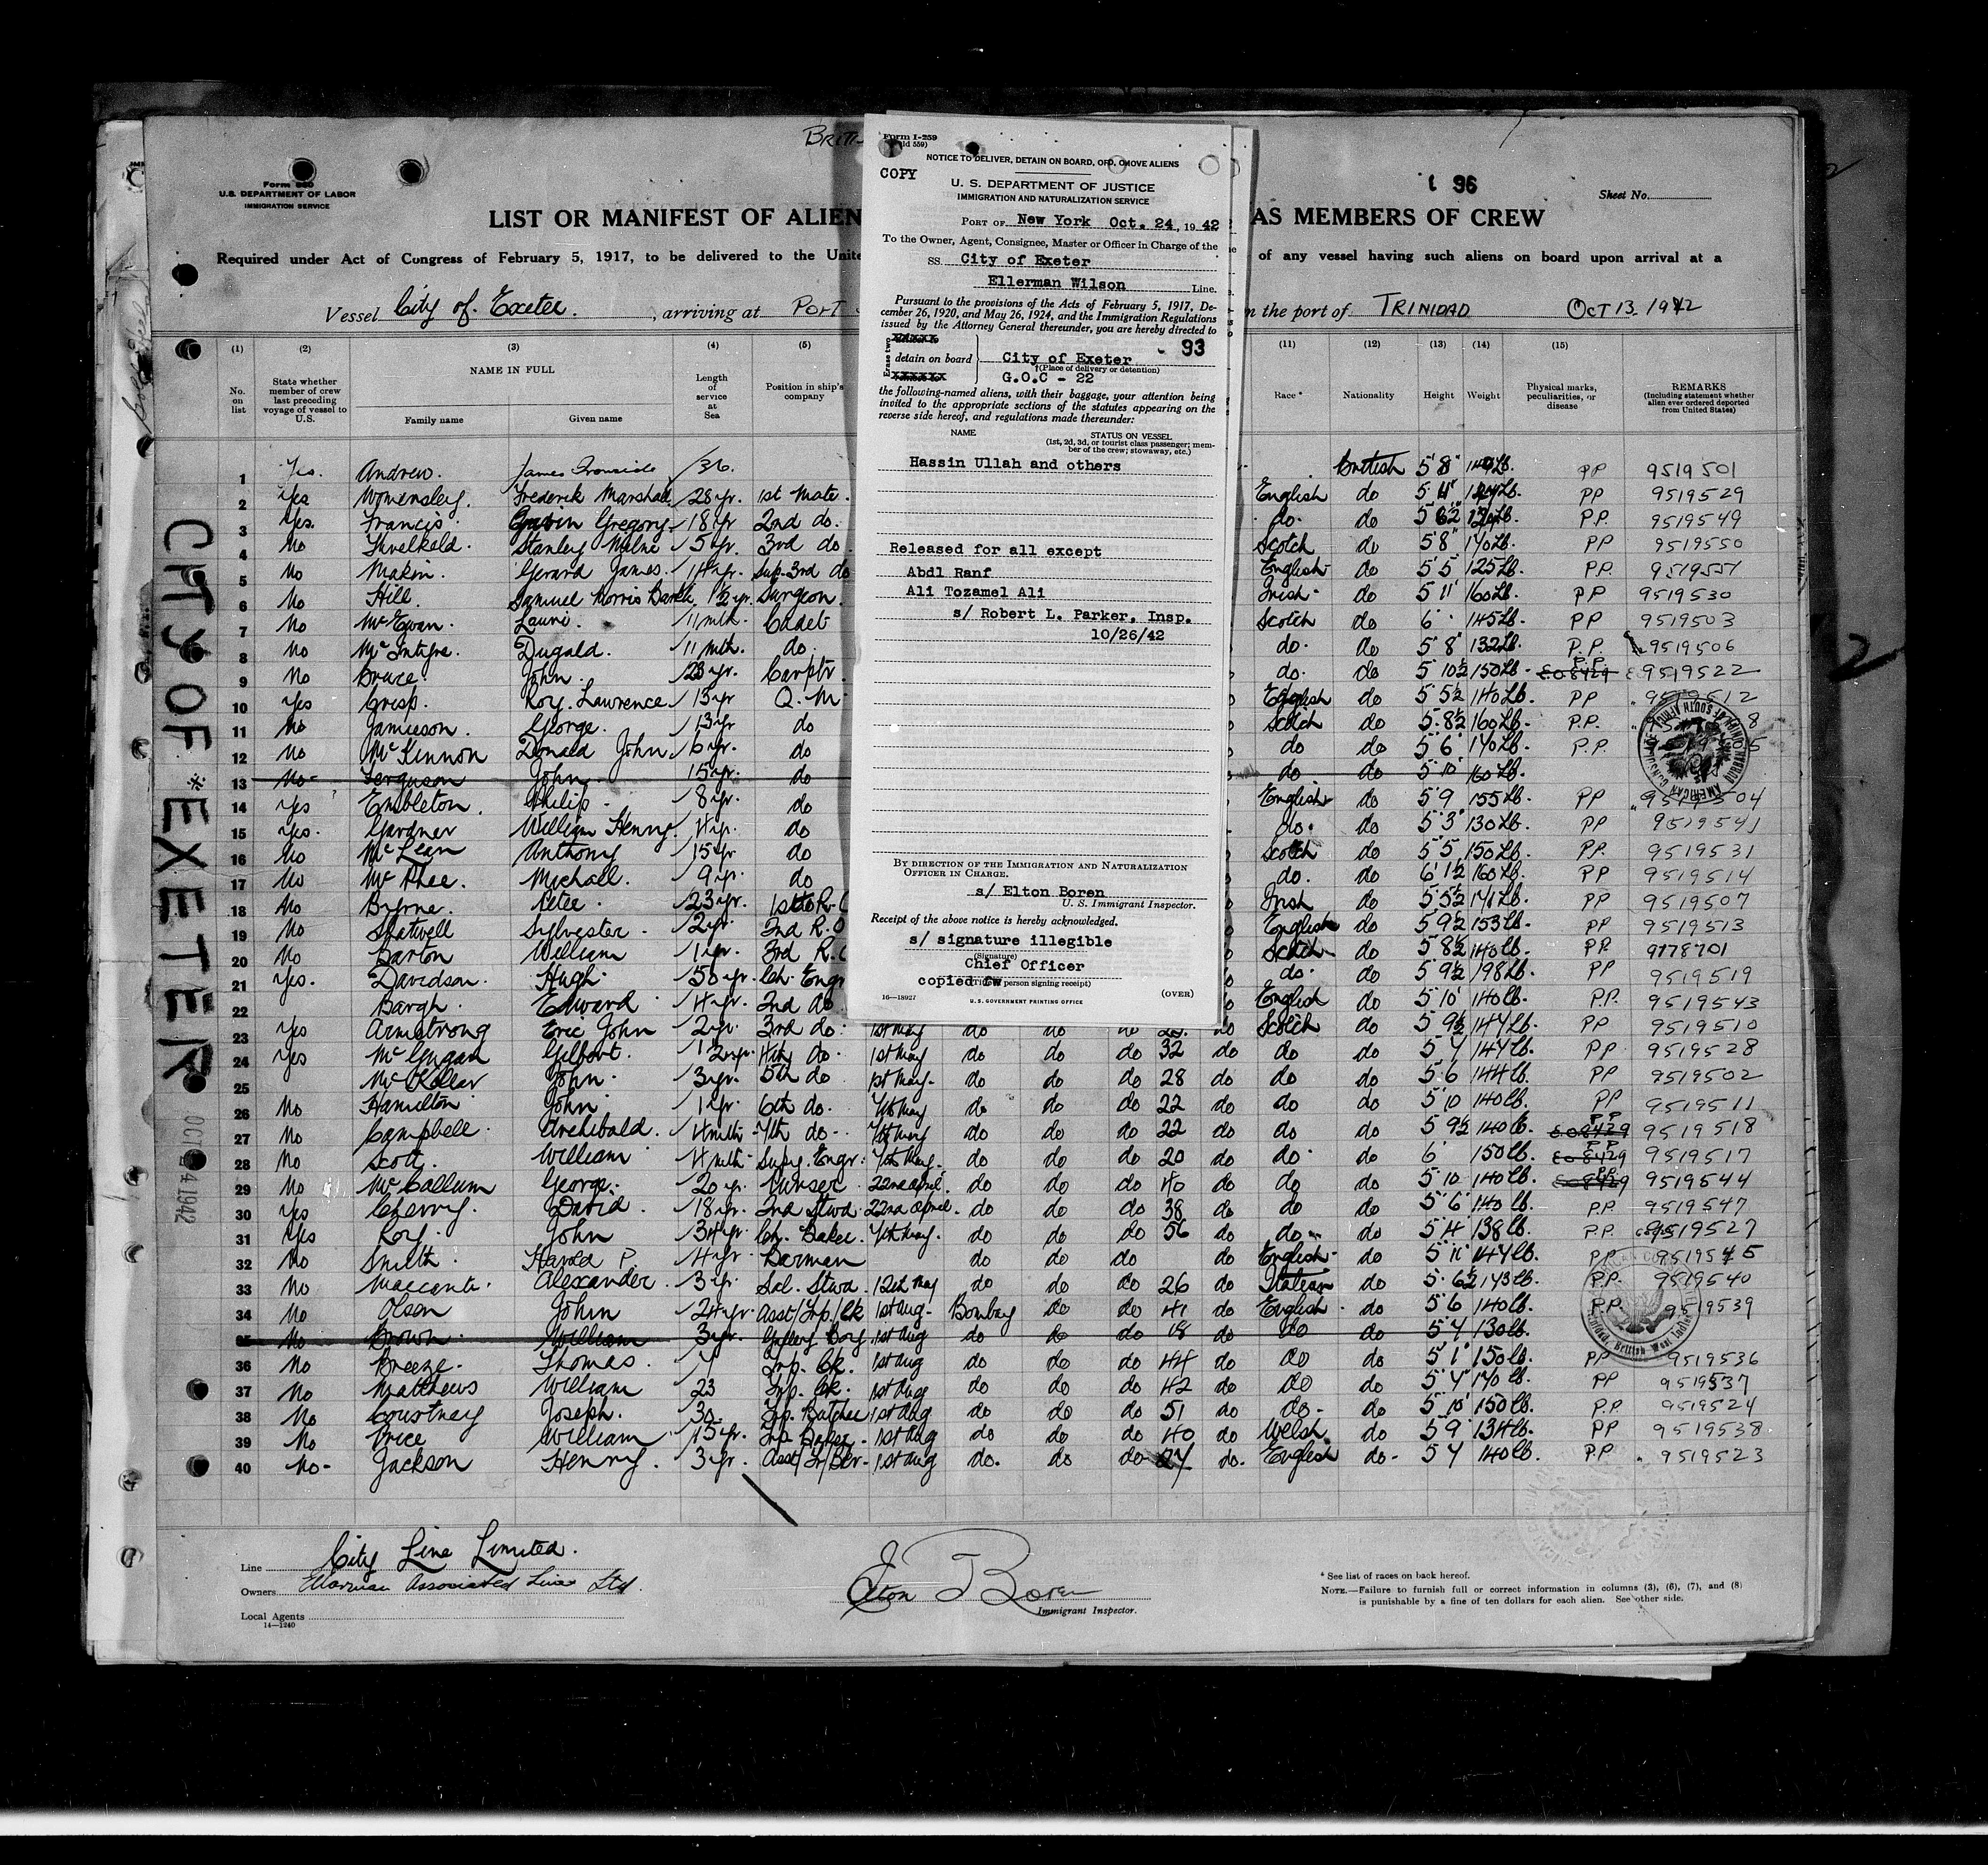 BRITI
Form 680
U.S. DEPARTMENT OF LABOR
IMMIGRATION SERVICE
96
Sheet No.
LIST OR MANIFEST OF ALIEN
AS MEMBERS OF CREW
Required under Act of Congress of February 5, 1917, to be delivered to the Unite
of any vessel having such aliens on board upon arrival at a
Vessel City of Exeter. , arriving at PORT
the port of TRINIDAD OCT 13 1942
Form I-259
NOTICE TO DELIVER, DETAIN ON BOARD, OR REMOVE ALIENS
COPY
U. S. DEPARTMENT OF JUSTICE
IMMIGRATION AND NATURALIZATION SERVICE
PORT OF New York Oct. 24, 1942
To the Owner, Agent, Consignee, Master or Officer in Charge of the
SS. City of Exeter
Ellerman Wilson Line.
Pursuant to the provisions of the Acts of February 5, 1917, De-
cember 26, 1920, and May 26, 1924, and the Immigration Regulations
issued by the Attorney General thereunder, you are hereby directed to
93
Erase two
detain on board } City of Exeter
†(Place of delivery or detention)
xxxxxx G.O.C - 22
the following-named aliens, with their baggage, your attention being
invited to the appropriate sections of the statutes appearing on the
reverse side hereof, and regulations made thereunder:
NAME STATUS ON VESSEL
(1st, 2d, 3d, or tourist class passenger; mem-
ber of the crew; stowaway, etc.)
Hassin Ullah and others
Released for all except
Abdl Ranf
Ali Tozamel Ali
s/ Robert L. Parker, Insp.
10/26/42
BY DIRECTION OF THE IMMIGRATION AND NATURALIZATION
OFFICER IN CHARGE.
s/ Elton Boren
U. S. Immigrant Inspector.
Receipt of the above notice is hereby acknowledged.
s/ signature illegible
(Signature)
Chief Officer
copied GW
(Title of person signing receipt)
16—18927 U.S. GOVERNMENT PRINTING OFFICE (OVER)
(1) (2) (3) (4) (5) (11) (12) (13) (14) (15)
No. on list
State whether member of crew last preceding voyage of vessel to U.S.
NAME IN FULL
Family name Given name
Length of service at Sea
Position in ship's company
Race * Nationality Height Weight
Physical marks, peculiarities, or disease
REMARKS
(Including statement whether alien ever ordered deported from United States)
1 Yes. Andrew. James Ironside 36. British 5 8 149Lb. PP 9519501
2 Yes Womersley. Frederik Marshall 28 yr. 1st Mate. English do 5 11 PP 9519529
3 Yes. Francis. Gavin Gregory 18 yr 2nd do. do. do 5 6½ PP. 9519549
4 No Threlkeld. Stanley Milne 5 yr. 3rd do Scotch do 5 8 140Lb. PP 9519550
5 No Makin. Gerard James. 14 yr. Sup. 3rd do English do 5 5 125Lb. PP. 9519551
6 No Hill. Samuel Morris 2 yr. Surgeon. Irish do 5 11 160Lb. PP 9519530
7 No McEwan. 11 mth. Cadet Scotch do 6 145Lb. PP 9519503
8 No McIntyre. Dugald. 11 mth. do. do. do 5 8 132Lb P.P. 9519506
9 No Bruce. John. 23 yr. Carptr. do. do 5 10½ 150Lb. E08429 P.P. 9519522
10 Yes Crisp. Roy. Lawrence. 13 yr Q. M do English do 5 5½ 140Lb. PP 9519512
11 No Jamieson. George. 13 yr do Scotch do 5 8½ 160Lb. P.P. 8
12 No McKinnon Donald John. 6 yr. do do do 5 6 140Lb. P.P. 5
13 No Ferguson John 15 yr. do do. do 5 10 160Lb.
14 Yes Embleton. Philip. 8 yr. do English do 5 9 155Lb PP 04
15 Yes. Gardner William Henry. 4 yr. do do. do 5 3 130Lb. PP 9519541
16 No McLean Anthony 15 yr do Scotch do 5 5 150Lb. PP. 9519531
17 No McPhee. Michall. 9 yr. do do. do 6 1½ 160Lb. PP 9519514
18 No Byrne. Peter. 23 yr. 1st R.O Irish do 5 5½ 141Lb. PP 9519507
19 No Shatwell Sylvester. 2 yr. 2nd R.O English do 5 9½ 153Lb. PP 9519513
20 No Barton William 1 yr. 3rd R.O Scotch do 5 8½ 140Lb. PP. 9178701
21 Yes. Davidson. Hugh. 50 yr. Ch. Engr do. do 5 9½ 198Lb. PP 9519519
22 Bargh. Edward 4 yr. 2nd do English do 5 10 140Lb. PP. 9519543
23 Yes Armstrong Eric John 2 yr. 3rd do. 1st May do do do do Scotch do 5 9½ 147Lb. PP 9519510
24 Yes McGugan Gilbert. 4th do. 1st May do do do 32 do do do 5 7 147Lb. PP 9519528
25 McKellar John. 3 yr. 5th do 1st May. do do do 28 do do do 5 6 144Lb. PP 9519502
26 No Hamilton John. 1 yr. 6th do. 7th May do do do 22 do do do 5 10 140Lb. PP 9519511
27 No Campbell. Archibald. 4 mth. 7th do. 7th May do do do 22 do do do 5 9½ 140Lb. E08429 P.P. 9519518
28 No Scott. William 4 mth Supy. Engr. 7th May. do do do 20 do do. do 6 150Lb. E08429 P.P. 9519517
29 No McCallum George. 20 yr. Purser. 22nd April. do do do 40 do do do 5 10 140Lb. E08429 P.P. 9519544
30 Yes Cherry. David. 18 yr. 2nd Stwd. 22nd April. do do do 38 do do do 5 6 140Lb. P.P. 9519547
31 Yes Roy. John 34 yr. Ch. Baker. 7th May. do do do 56 do do do 5 4 138Lb. P.P. 9519527
32 No Smith. Harold P. 4 yr. Barman do do do English do 5 11 147Lb. PP 9519545
33 No Alexander. 3 yr. Sal. Stwd. 12th May do do do 26 do Italian do 5 6½ 143Lb. PP. 9519540
34 No Olson John 24 yr. Asst/Trp/Ck 1st Aug. Bombay do do 41 do English do 5 6 140Lb. P.P. 9519539
35 No Brown William 3 yr. Galley Boy. 1st Aug do do do 18 do do do 5 4 130Lb.
36 No Breeze. Thomas. 7 Trp. Ck. 1st Aug do do do 44 do do do 5 1 150Lb. PP. 9519536
37 No Matthews William 23 Trp. Ck. 1st Aug do do do 42 do do do 5 4 140Lb. PP 9519537
38 No Courtney Joseph. 30 Trp. Butcher 1st Aug do do do 51 do do. do 5 10 150Lb. P.P. 9519524
39 No Price William 15 yr. Trp Baker. 1st Aug do do do 40 do Welsh. do 5 9 134Lb. PP 9519538
40 No. Jackson Henry. 3 yr. Asst/Tr/Bkr. 1st Aug do. do do 27 do. English do. 5 7 140Lb. P.P 9519523
CITY OF * EXETER
OCT 24 1942
2
Line City Line Limited.
Owners Ellerman Associated Lines Ltd.
Local Agents
14—1240
Elton Boren
Immigrant Inspector.
* See list of races on back hereof.
NOTE.—Failure to furnish full or correct information in columns (3), (6), (7), and (8)
is punishable by a fine of ten dollars for each alien. See other side.